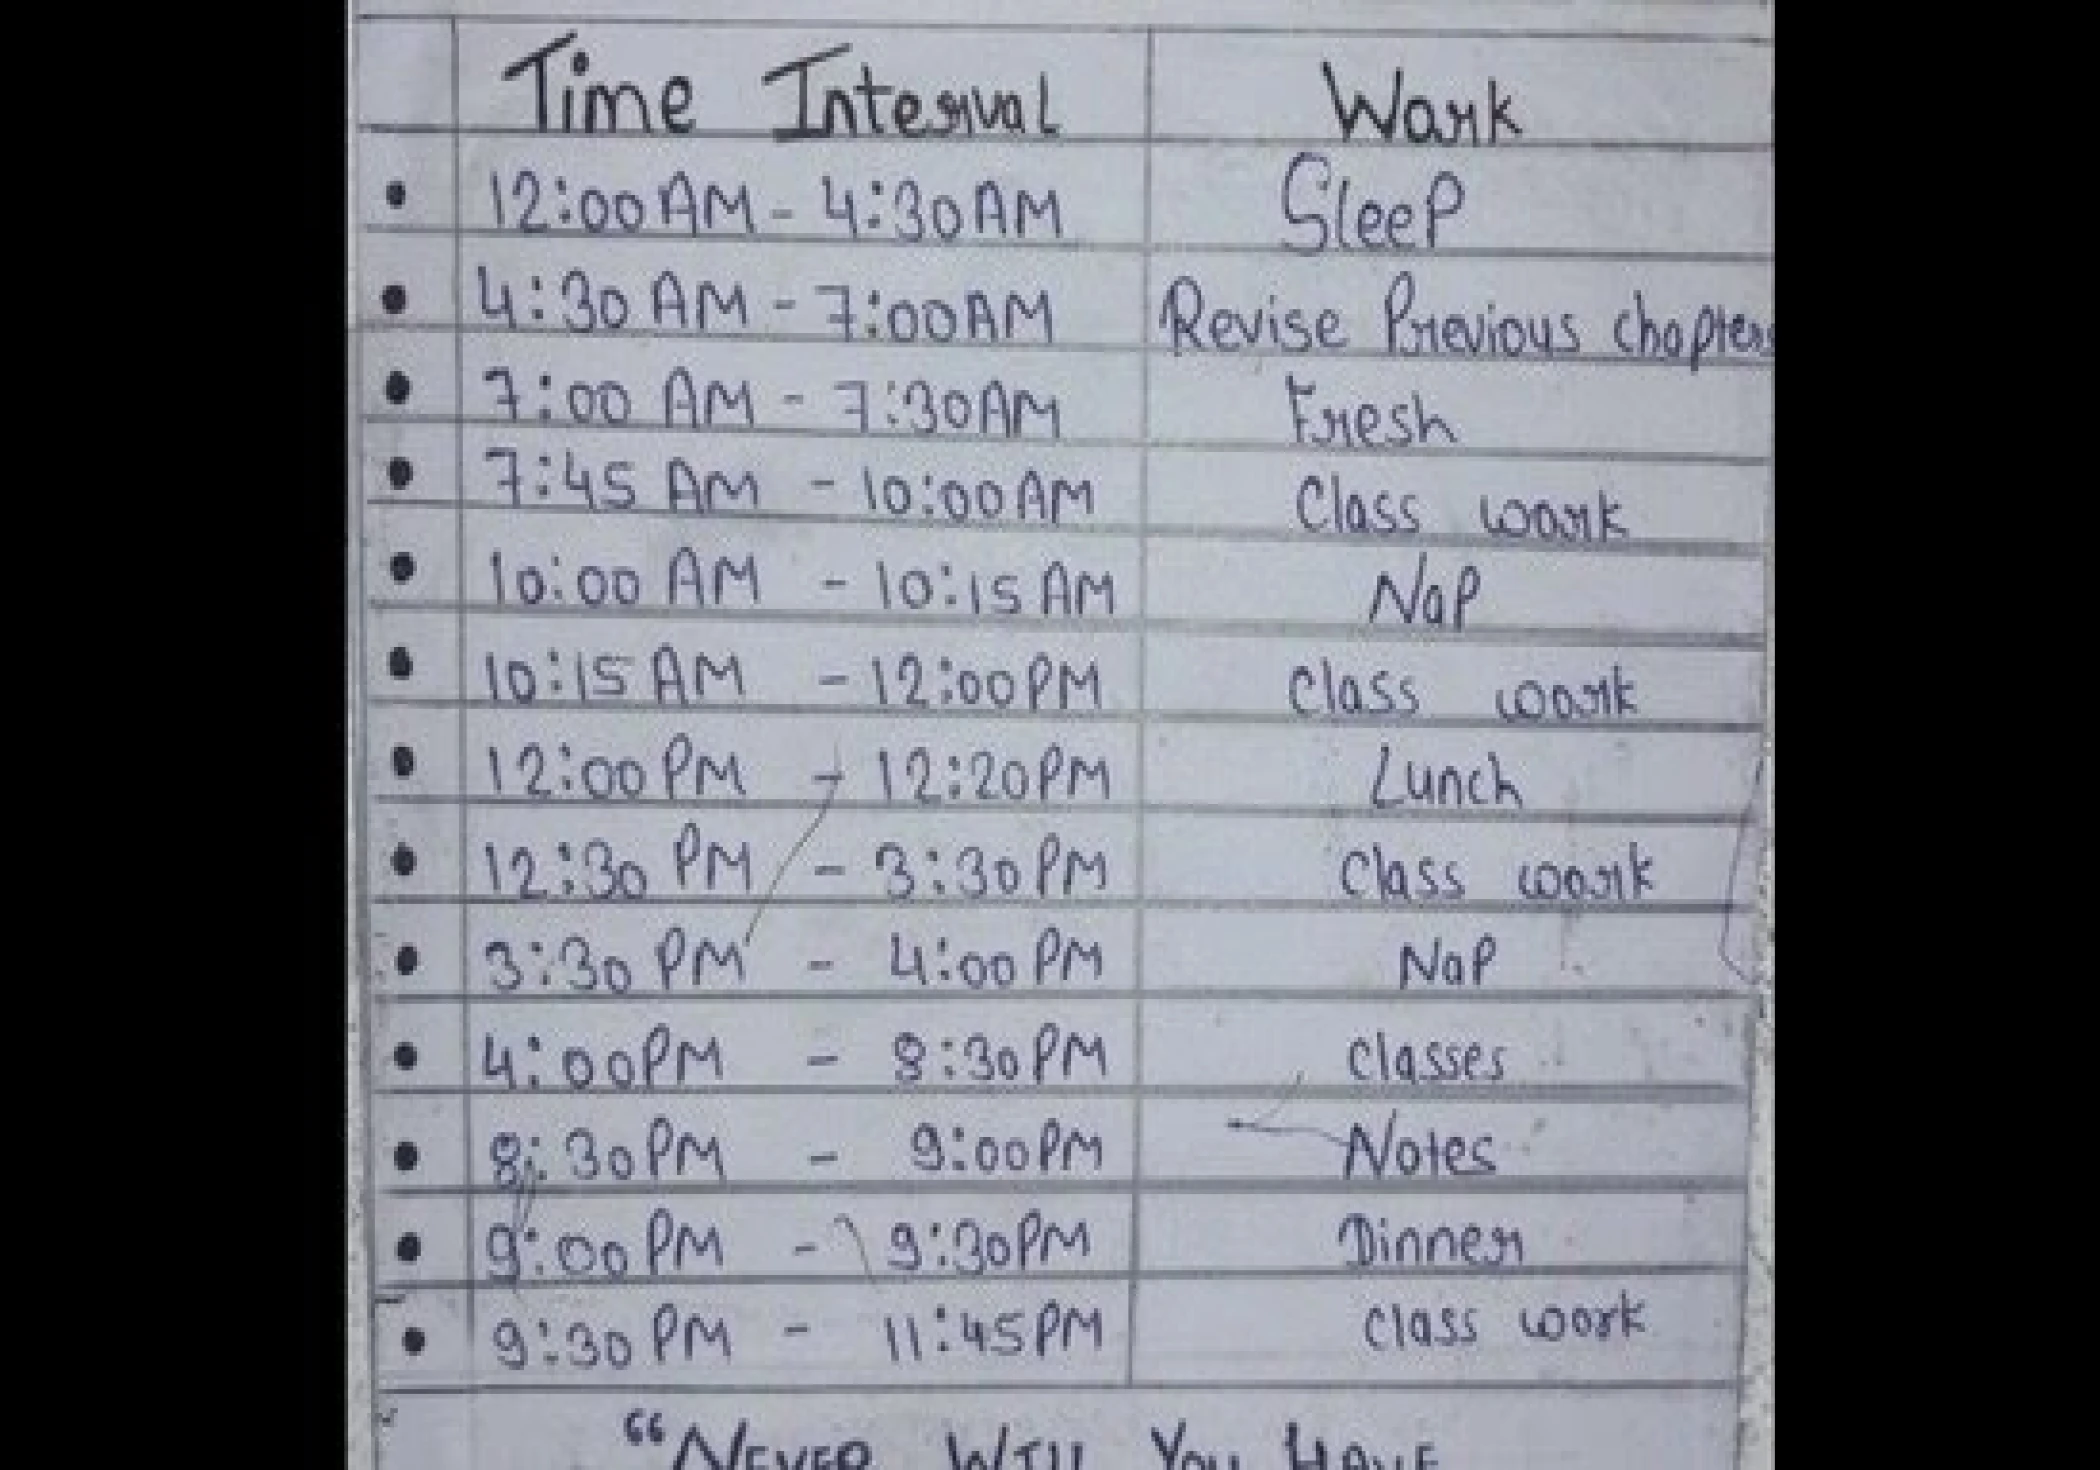 Time Interval Work
12:00 AM - 4:30 AM Sleep
4:30 AM - 7:00 AM Revise Previous chapters
7:00 AM - 7:30 AM Fresh
7:45 AM - 10:00 AM Class work
10:00 AM - 10:15 AM Nap
10:15 AM - 12:00 PM Class work
12:00 PM - 12:20 PM Lunch
12:30 PM - 3:30 PM Class work
3:30 PM - 4:00 PM Nap
4:00 PM - 8:30 PM Classes
8:30 PM - 9:00 PM Notes
9:00 PM - 9:30 PM Dinner
9:30 PM - 11:45 PM Class work
"NEVER WILL YOU HAVE